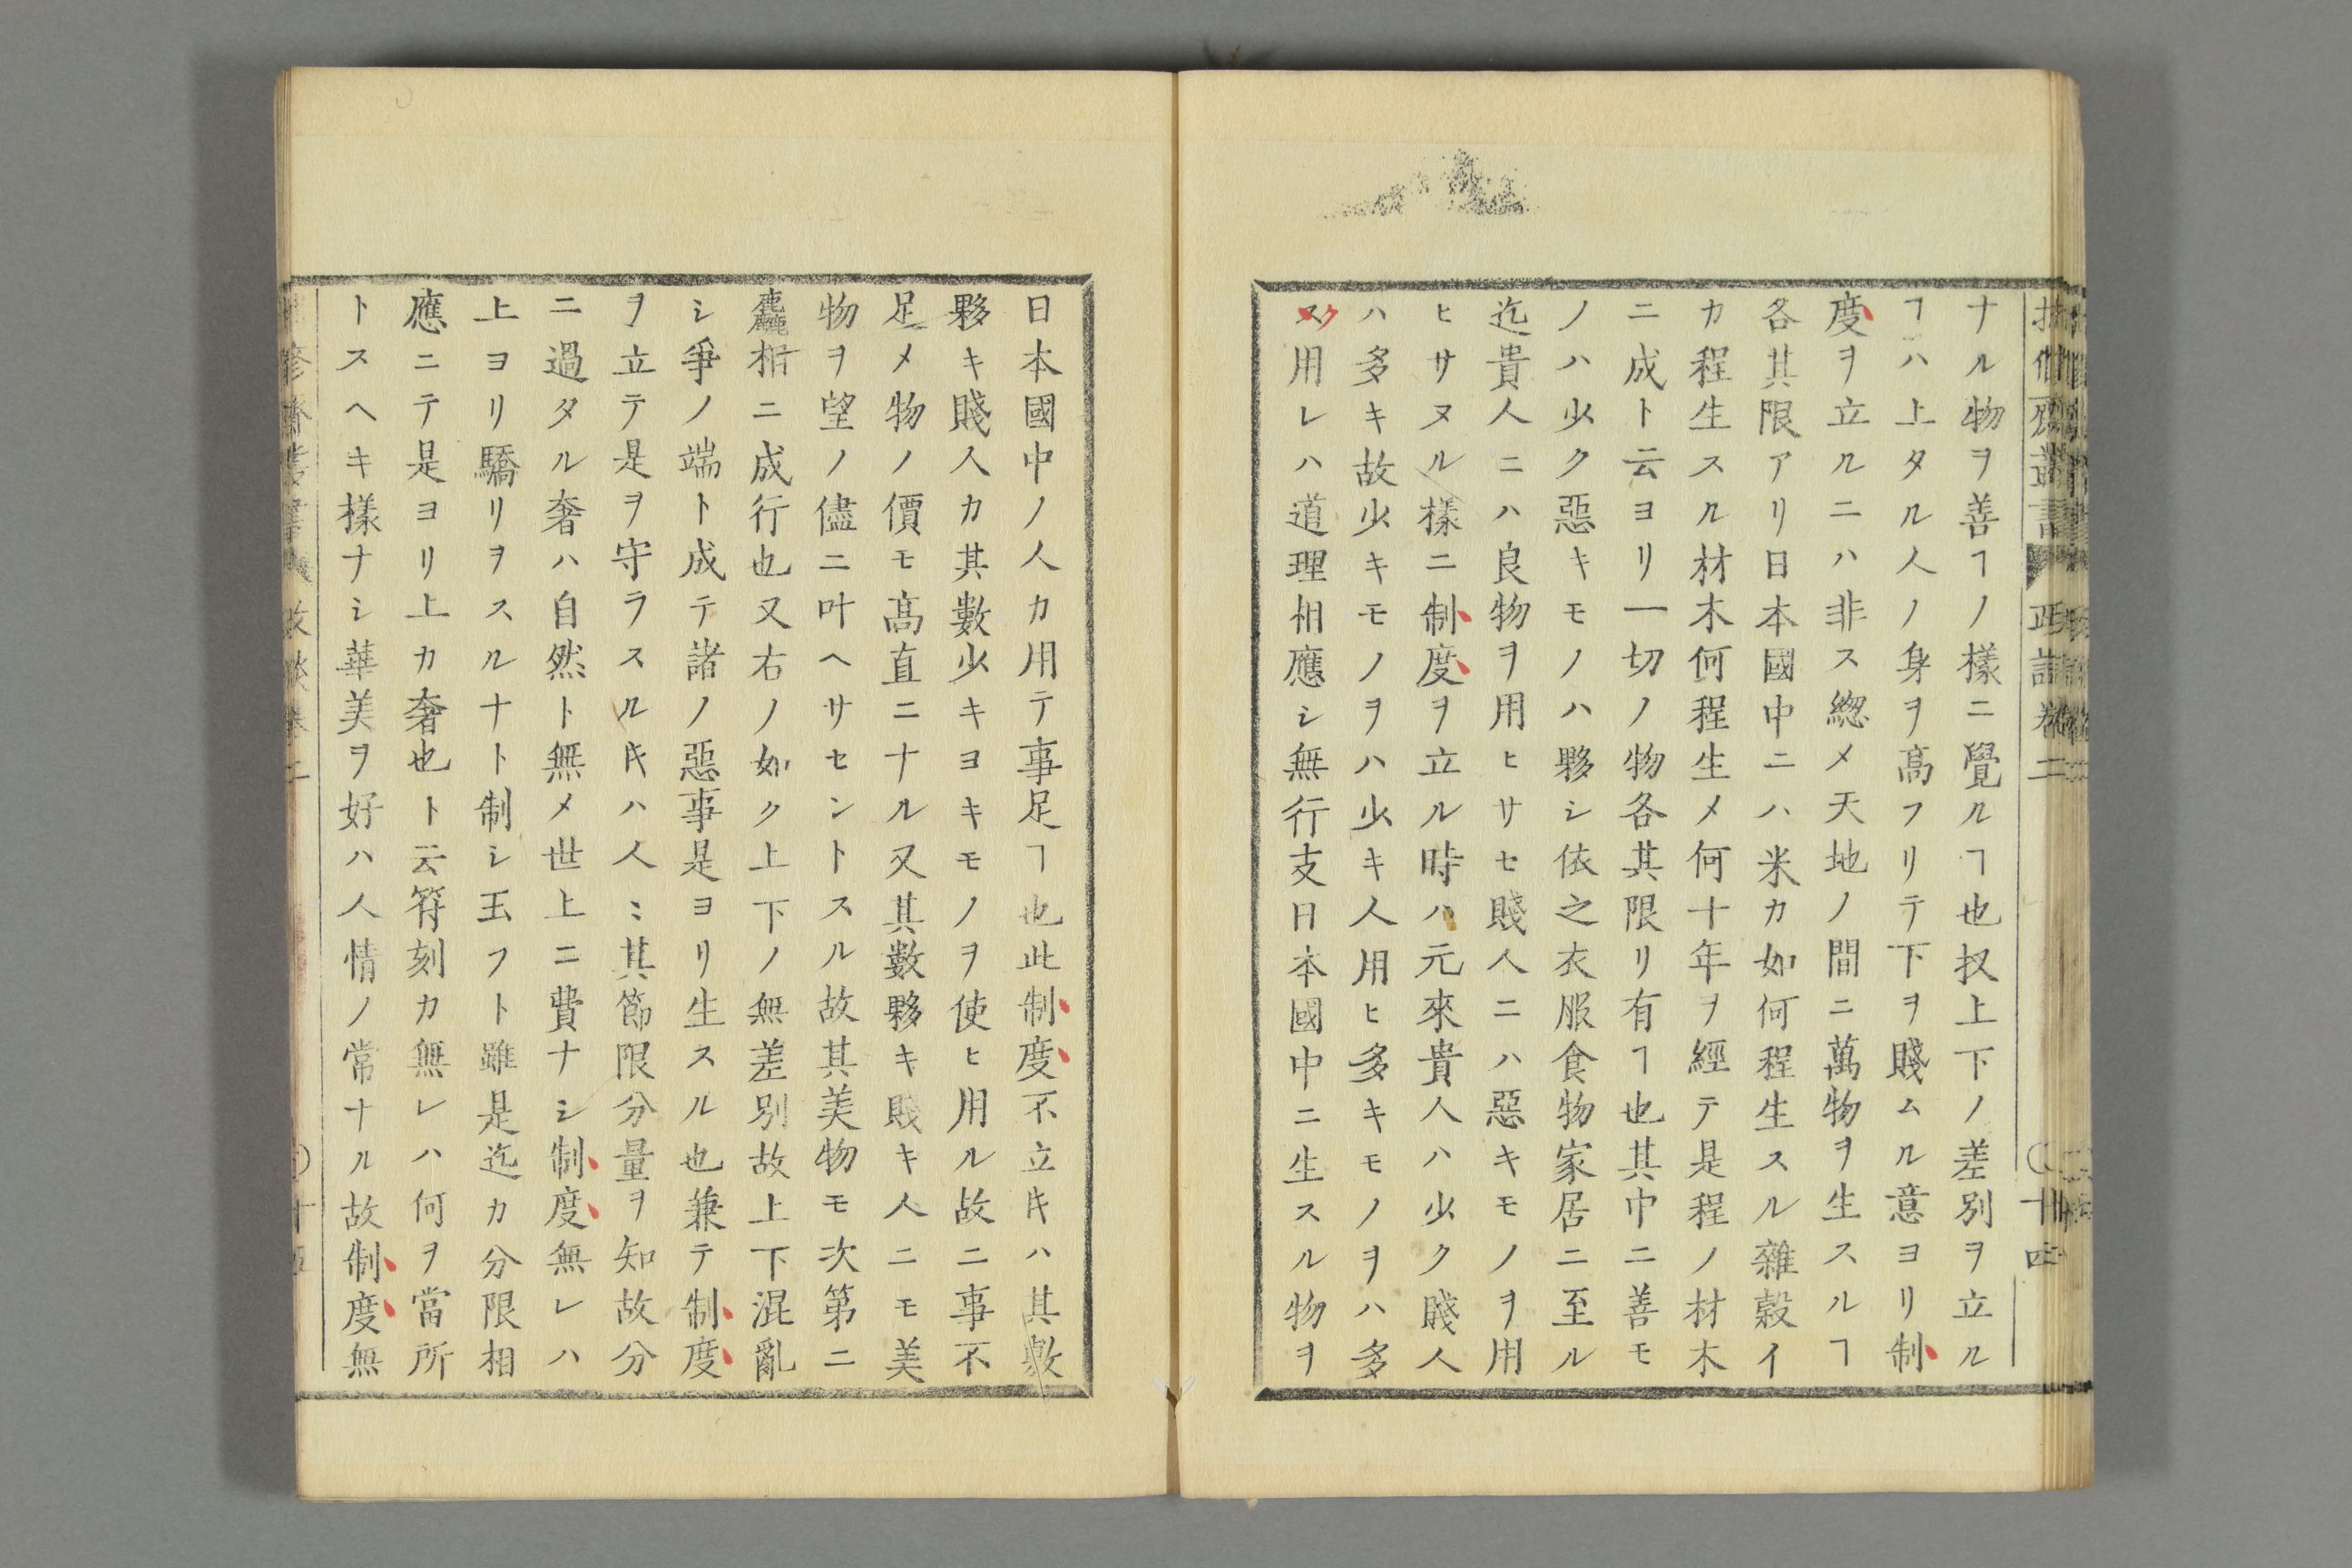 ナル物ヲ善ヿノ樣ニ覺ルヿ也扠上下ノ差別ヲ立ル
ヿハ上タル人ノ身ヲ髙フリテ下ヲ賤ムル意ヨリ制
度ヲ立ルニハ非ス緫メ天地ノ間ニ萬物ヲ生スルヿ
各其限アリ日本國中ニハ米カ如何程生スル雜糓イ
カ程生スル材木何程生メ何十年ヲ經テ是程ノ材木
ニ成ト云ヨリ一切ノ物各其限リ有ヿ也其中ニ善モ
ノハ少ク惡キモノハ夥シ依之衣服食物家居ニ至ル
迄貴人ニハ良物ヲ用ヒサセ賤人ニハ惡キモノヲ用
ヒサヌル樣ニ制度ヲ立ル時ハ元來貴人ハ少ク賤人
ハ多キ故少キモノヲハ少キ人用ヒ多キモノヲハ多
ク用レハ道理相應シ無行支日本國中ニ生スル物ヲ
日本國中ノ人カ用テ事足ヿ也此制度不立㐧ハ其數
夥キ賤人カ其數少キヨキモノヲ使ヒ用ル故ニ事不
足メ物ノ價モ髙直ニナル又其數夥キ賤キ人ニモ美
物ヲ望ノ儘ニ叶ヘサセントスル故其美物モ次第ニ
麤相ニ成行也又右ノ如ク上下ノ無差別故上下混亂
シ爭ノ端ト成テ諸ノ惡事是ヨリ生スル也兼テ制度
ヲ立テ是ヲ守ラスル㐧ハ人〻其節限分量ヲ知故分
ニ過タル奢ハ自然ト無メ世上ニ費ナシ制度無レハ
上ヨリ驕リヲスルナト制シ玉フト雖是迄カ分限相
應ニテ是ヨリ上カ奢也ト云符刻カ無レハ何ヲ當所
トスヘキ樣ナシ華美ヲ好ハ人情ノ常ナル故制度無